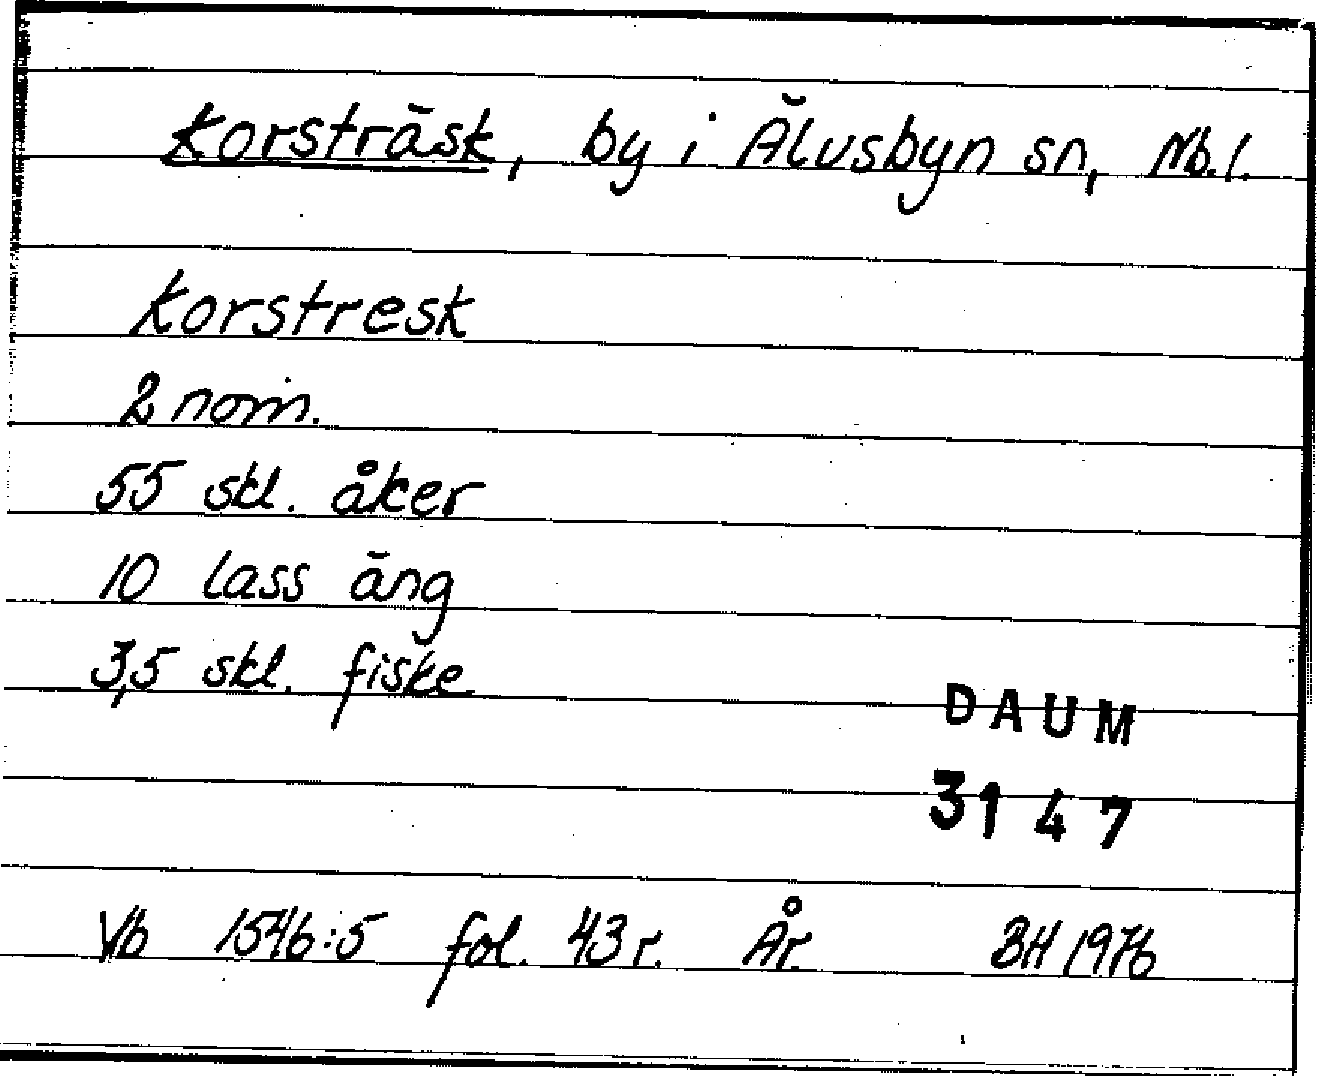 Korsträsk, by i Älvsbyn sn, Nb.l.
Korstresk
2 nomin.
55 skl. åker
10 lass äng
3,5 skl. fiske
DAUM
3147
Vb 1546:5 fol. 43 r. År. BH 1976